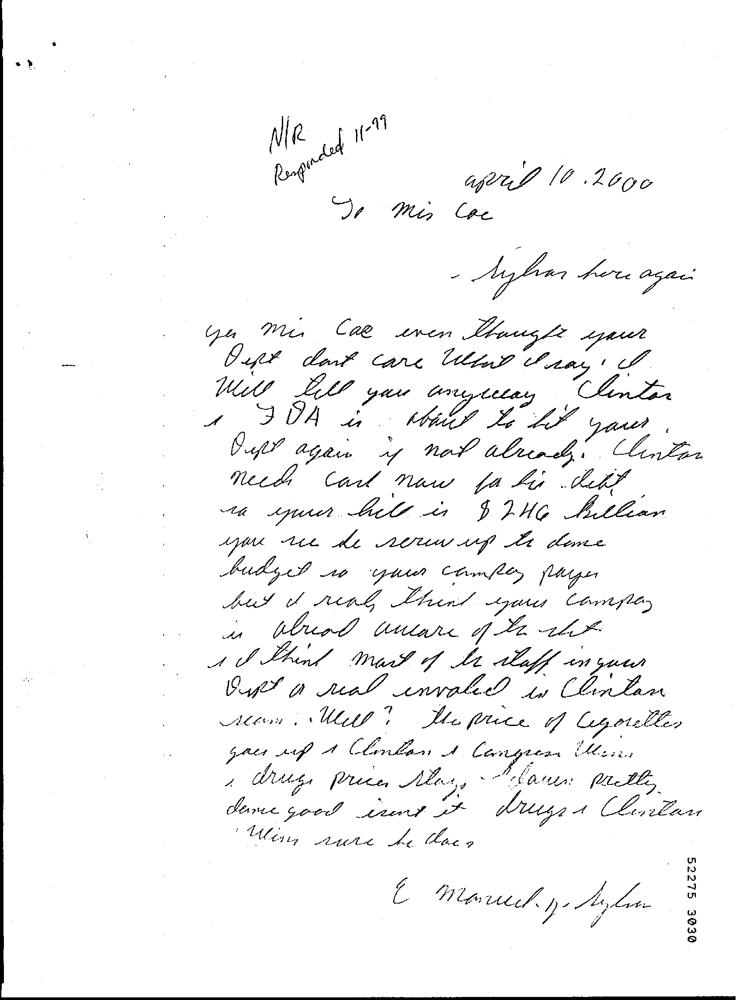 N/R
Responded 11-99
april 10.2000
To Mis Coe
- Sylvar here again
yes Mis Coe even thought your
Dept dont care What I say. I
Will tell you anyway Clinton
FDA is about to hit your
Dept again if not already. Clinton
needs cash now for his debt
so your bill is $ 246 Billion
you see he screw up the dame
budget so your pays
but I think your
is aware of the shit
I think most of the staff in your
Dept real in Clinton
scam. Well? the price of Cigarettes
goes up Clinton & Congress Wins
drugs prices stays down pretty
dame good isent it drugs & Clinton
Wins sure he does
E Manuel. Sylvar
52275 3030